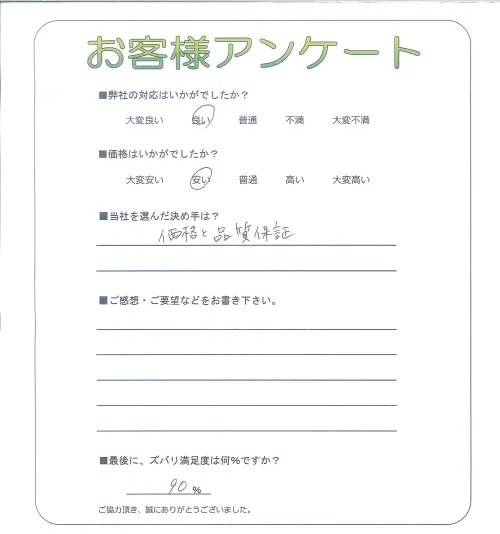 お客様アンケート
■弊社の対応はいかがでしたか？
大変良い 良い 普通 不満 大変不満
■価格はいかがでしたか？
大変安い 安い 普通 高い 大変高い
■当社を選んだ決め手は？
価格と品質保証
■ご感想・ご要望などをお書き下さい。
■最後に、ズバリ満足度は何%ですか？
90 %
ご協力頂き、誠にありがとうございました。